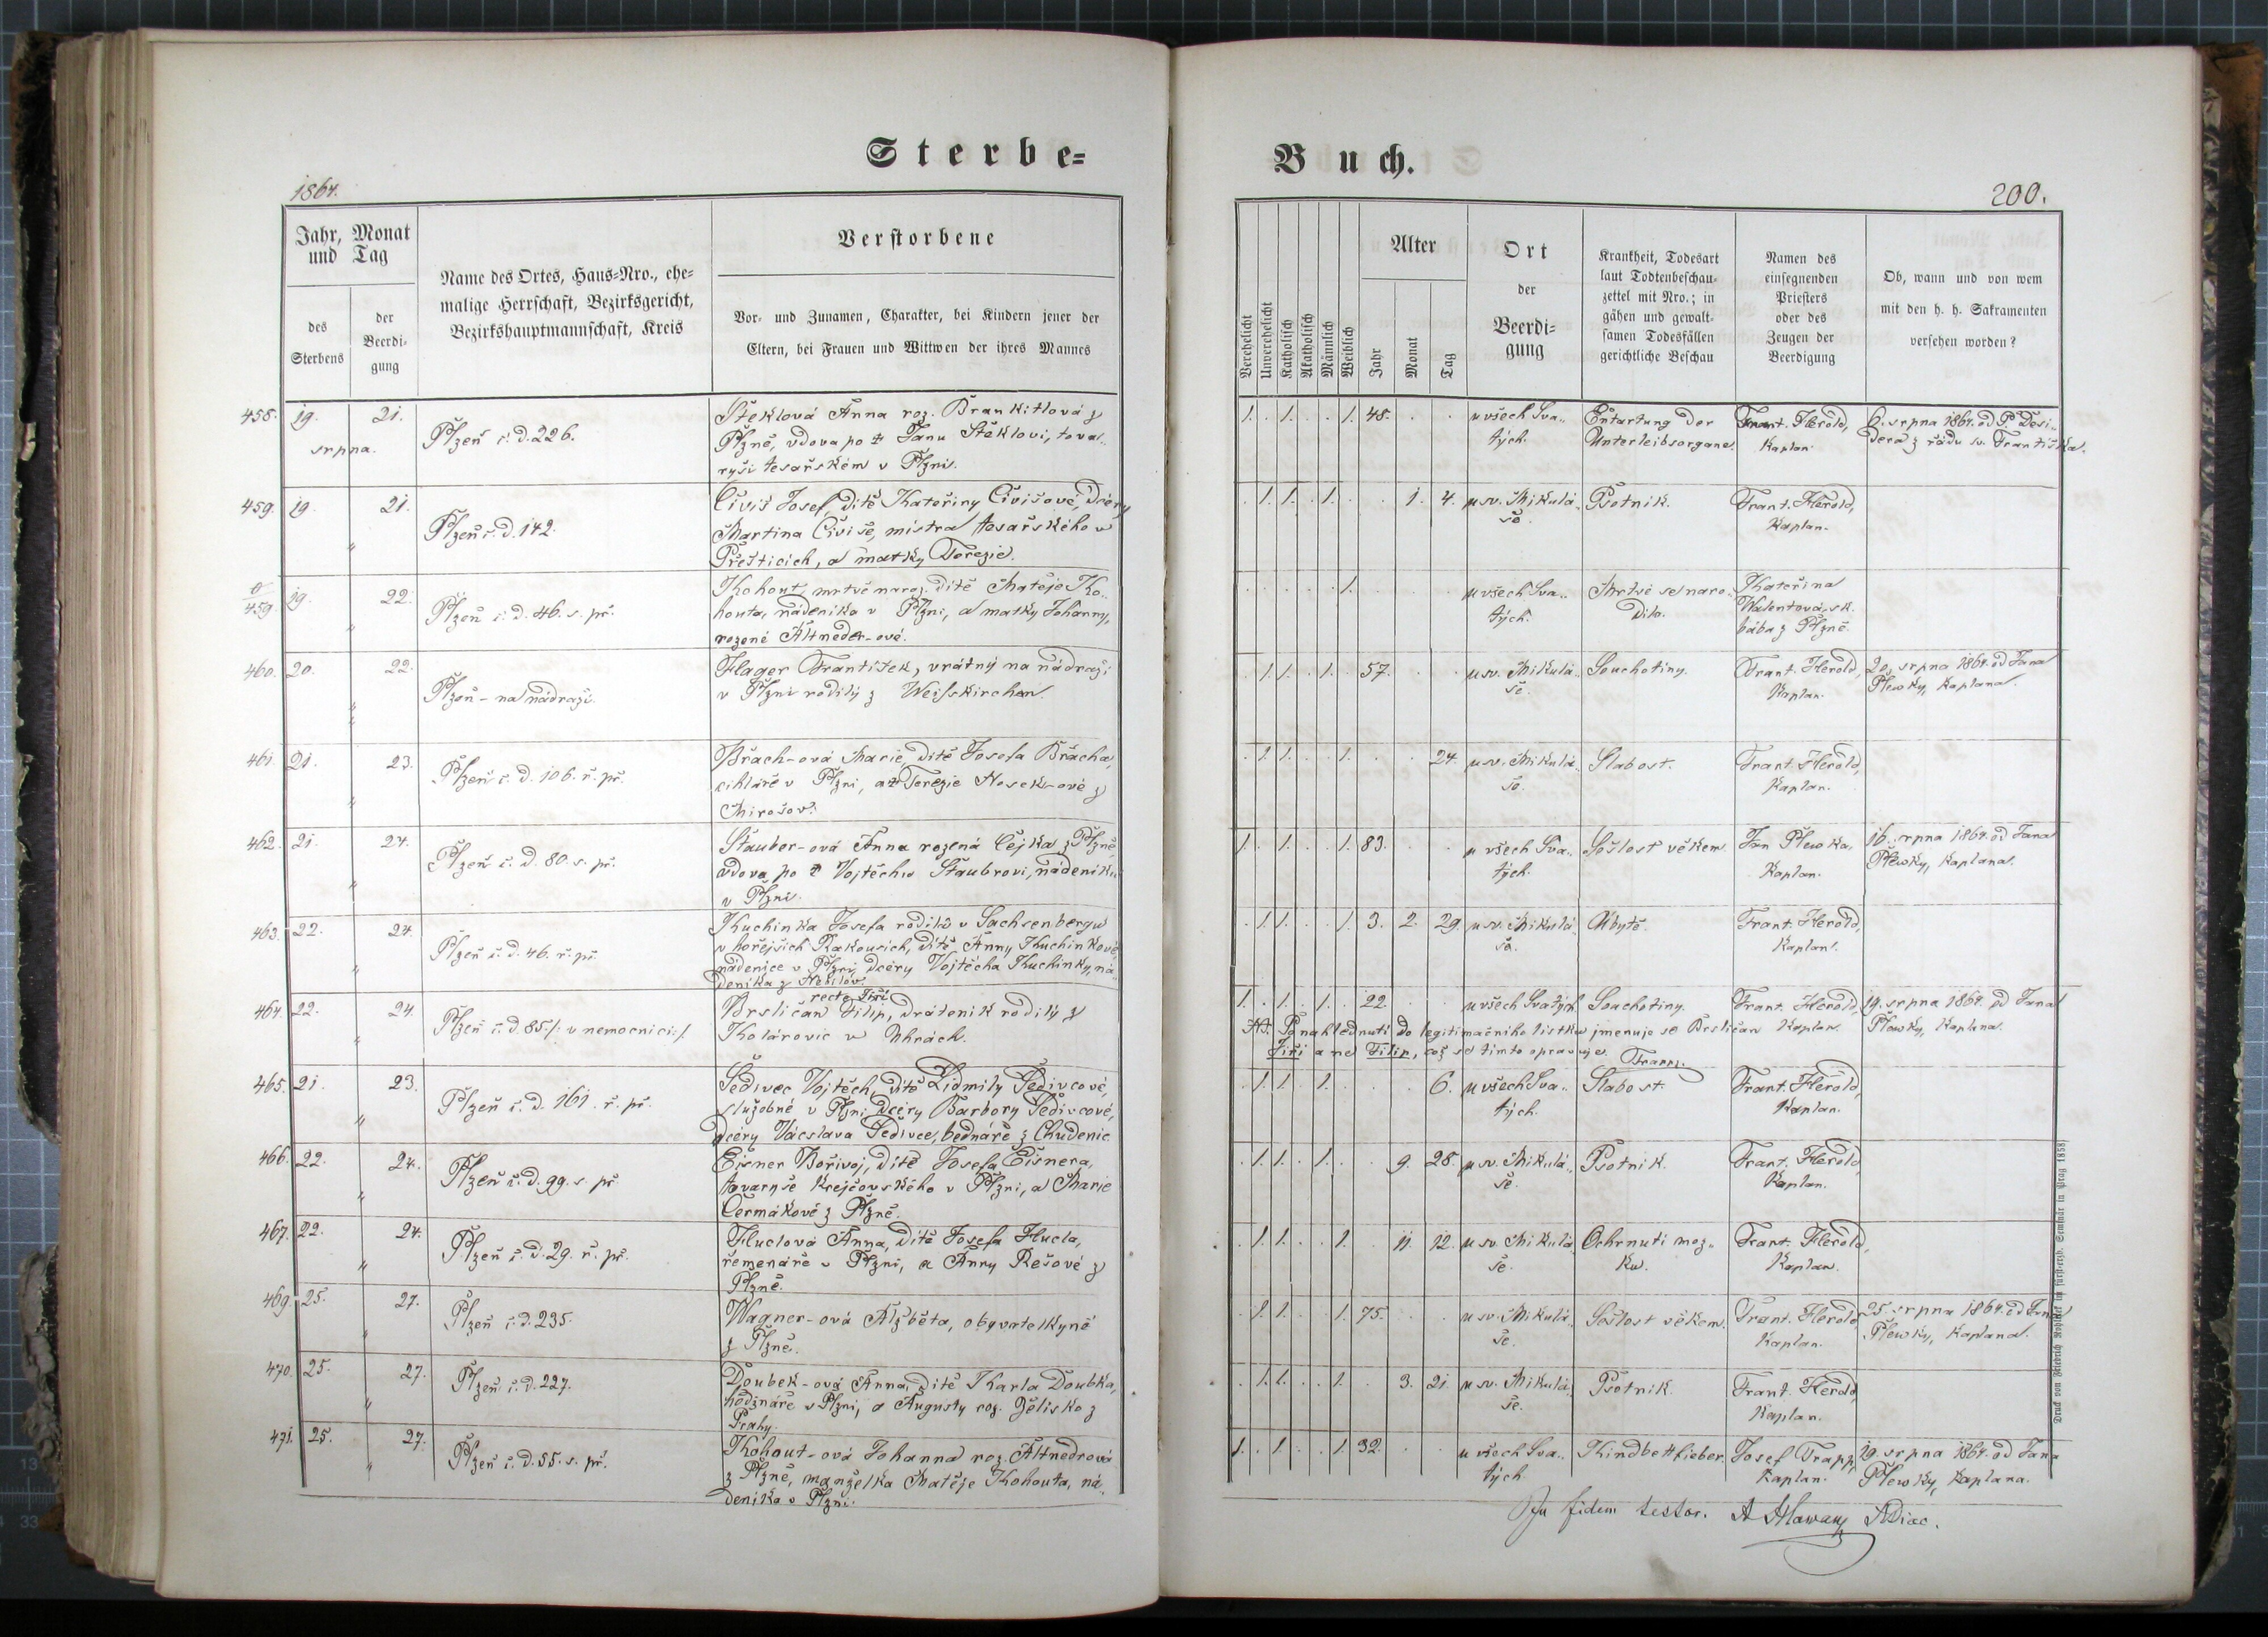 Sterbe-
1864.
Jahr, Monat
und Tag
des
Sterbens
der
Beerdi-
gung
Name des Ortes, Haus-Nro., ehe-
malige Herrschaft, Bezirksgericht,
Bezirkshauptmannschaft, Kreis
Verstorbene
Vor- und Zunamen, Charakter, bei Kindern jener der
Eltern, bei Frauen und Wittwen der ihres Mannes
458. 19. 21.
srpna.
Plzeň č. d. 226.
Šteklová Anna roz. Brankitlová z
Plzně, vdova po † Janu Šteklovi, tovar-
ryši tesařském v Plzni.
459. 19. 21.
"
Plzeň č. d. 142.
Čiviš Josef, dítě Kateřiny Čivišové, dcery
Martina Čiviše, mistra tesařského v
Přešticích, a matky Terezie.
0/459. 19. 22.
"
Plzeň č. d. 46. s. př.
Kohout, mrtvě naroz. dítě Matěje Ko-
houta, nádeníka v Plzni, a matky Johanny,
rozené Altneder-ové.
460. 20. 22.
"
"
Plzeň - na nádraží.
Hager František, vrátný na nádraží
v Plzni rodilý z Weisskirchen.
461. 21. 23.
"
Plzeň č. d. 106. ř. př.
Brach-ová Marie, dítě Josefa Bracha,
cihláře v Plzni, a Terezie Hosek-ové z
Mirošov.
462. 21. 24.
"
Plzeň č. d. 80. s. př.
Stauber-ová Anna rozená Čejka z Plzně,
vdova po † Vojtěchu Štaubrovi, nádeníku
v Plzni.
463. 22. 24.
"
Plzeň č. d. 46. ř. př.
Kuchinka Josefa rodilá v Sachsenbergu
v hořejších Rakousích, dítě Anny Kuchinkové,
nádenice v Plzni, dcéry Vojtěcha Kuchinky, ná-
deníka z Nebílov.
464. 22. 24.
"
Plzeň č. d. 85 /: v nemocnici :/
recte Jiří
Brsličan Filip, dráteník rodilý z
Kolárovic v Uhrách.
465. 21. 23.
"
Plzeň č. d. 161. ř. př.
Šedivec Vojtěch, dítě Lidmily Šedivcové,
služebné v Plzni, dcéry Barbory Šedivcové,
dcéry Vácslava Šedivce, bednáře z Chudenic
466. 22. 24.
"
Plzeň č. d. 99. s. př.
Eišner Bořivoj, dítě Josefa Eišnera,
tovaryše krejčovského v Plzni, a Marie
Čermákové z Plzně.
467. 22. 24.
"
Plzeň č. d. 29. ř. př.
Huclová Anna, dítě Josefa Hucla,
řemenáře v Plzni, a Anny Rešové z
Plzně.
469. 25. 27.
"
Plzeň č. d. 235.
Wagner-ová Alžběta, obyvatelkyně
z Plzně.
470. 25. 27.
"
Plzeň č. d. 227.
Doubek-ová Anna, dítě Karla Doubka,
hodináře v Plzni, a Augusty roz. Želisko z
Prahy.
471. 25. 27.
"
Plzeň č. d. 55. s. př.
Kohout-ová Johanna roz. Altnedrová
z Plzně, manželka Matěje Kohouta, ná-
deníka v Plzni.
Buch.
200.
Verehelicht
Unverehelicht
Katholisch
Akatholisch
Männlich
Weiblich
Alter
Jahr
Monat
Tag
Ort
der
Beerdi-
gung
Krankheit, Todesart
laut Todtenbeschau-
zettel mit Nro.; in
gähen und gewalt-
samen Todesfällen
gerichtliche Beschau
Namen des
einsegnenden
Priesters
oder des
Zeugen der
Beerdigung
Ob, wann und von wem
mit den h. h. Sakramenten
versehen worden?
1. . 1. . . 1. 48. . . u všech Sva- Entartung der Frant. Herold, 6. srpna 1864. od P. Desi-
tých. Unterleibsorgane. Kaplan. dera z řádu sv. Františka.
. 1. 1. . 1. . . 1. 4. u sv. Mikulá- Psotník. Frant. Herold,
še. Kaplan.
. . . . . 1. . . . u všech Sva- Mrtvé se naro- Kateřina
tých. dilo. Walentová, sk.
bába z Plzně.
. 1. 1. . 1. . 57. . . u sv. Mikulá- Souchotiny. Frant. Herold, 20. srpna 1864. od Jana
še. Kaplan. Plewky, Kaplana.
. 1. 1. . . 1. . . 24. u sv. Mikulá- Slabost. Frant. Herold,
še. Kaplan.
1. . 1. . . 1. 83. . . u všech Sva- Sešlost věkem. Jan Plewka, 16. srpna 1864. od Jana
tých. Kaplan. Plewky, Kaplana.
. 1. 1. . . 1. 3. 2. 29. u sv. Mikulá- Úbytě. Frant. Herold,
še. Kaplan.
1. . 1. . 1. . 22. . . u všech Svatých Souchotiny. Frant. Herold, 19. srpna 1864. od Jana
NB. Po nahlédnutí do legitimačního lístku jmenuje se Brsličan Kaplan. Plewky, Kaplana.
Jiří a ne Filip, což se tímto opravuje. Trapp.
. 1. 1. . 1. . . . 6. u všech Sva- Slabost. Frant. Herold,
tých. Kaplan.
. 1. 1. . 1. . . 9. 28. u sv. Mikulá- Psotník. Frant. Herold
še. Kaplan.
. 1. 1. . . 1. . 11. 12. u sv. Mikulá- Ochrnutí moz- Frant. Herold,
še. ku. Kaplan.
. 1. 1. . . 1. 75. . . u sv. Mikulá- Sešlost věkem. Frant. Herold 25. srpna 1864. od Jana
še. Kaplan. Plewky, Kaplana.
. 1. 1. . . 1. . 3. 21. u sv. Mikulá- Psotník. Frant. Herold,
še. Kaplan.
1. . 1. . . 1. 32. . . u všech Sva- Kindbettfieber. Josef Trapp, 19. srpna 1864. od Jana
tých. Kaplan. Plewky, Kaplana.
In fidem testor. A Hlawan ADiac.
Druck von Friedrich Rohliček im fürst-erzb. Seminär in Prag 1858)